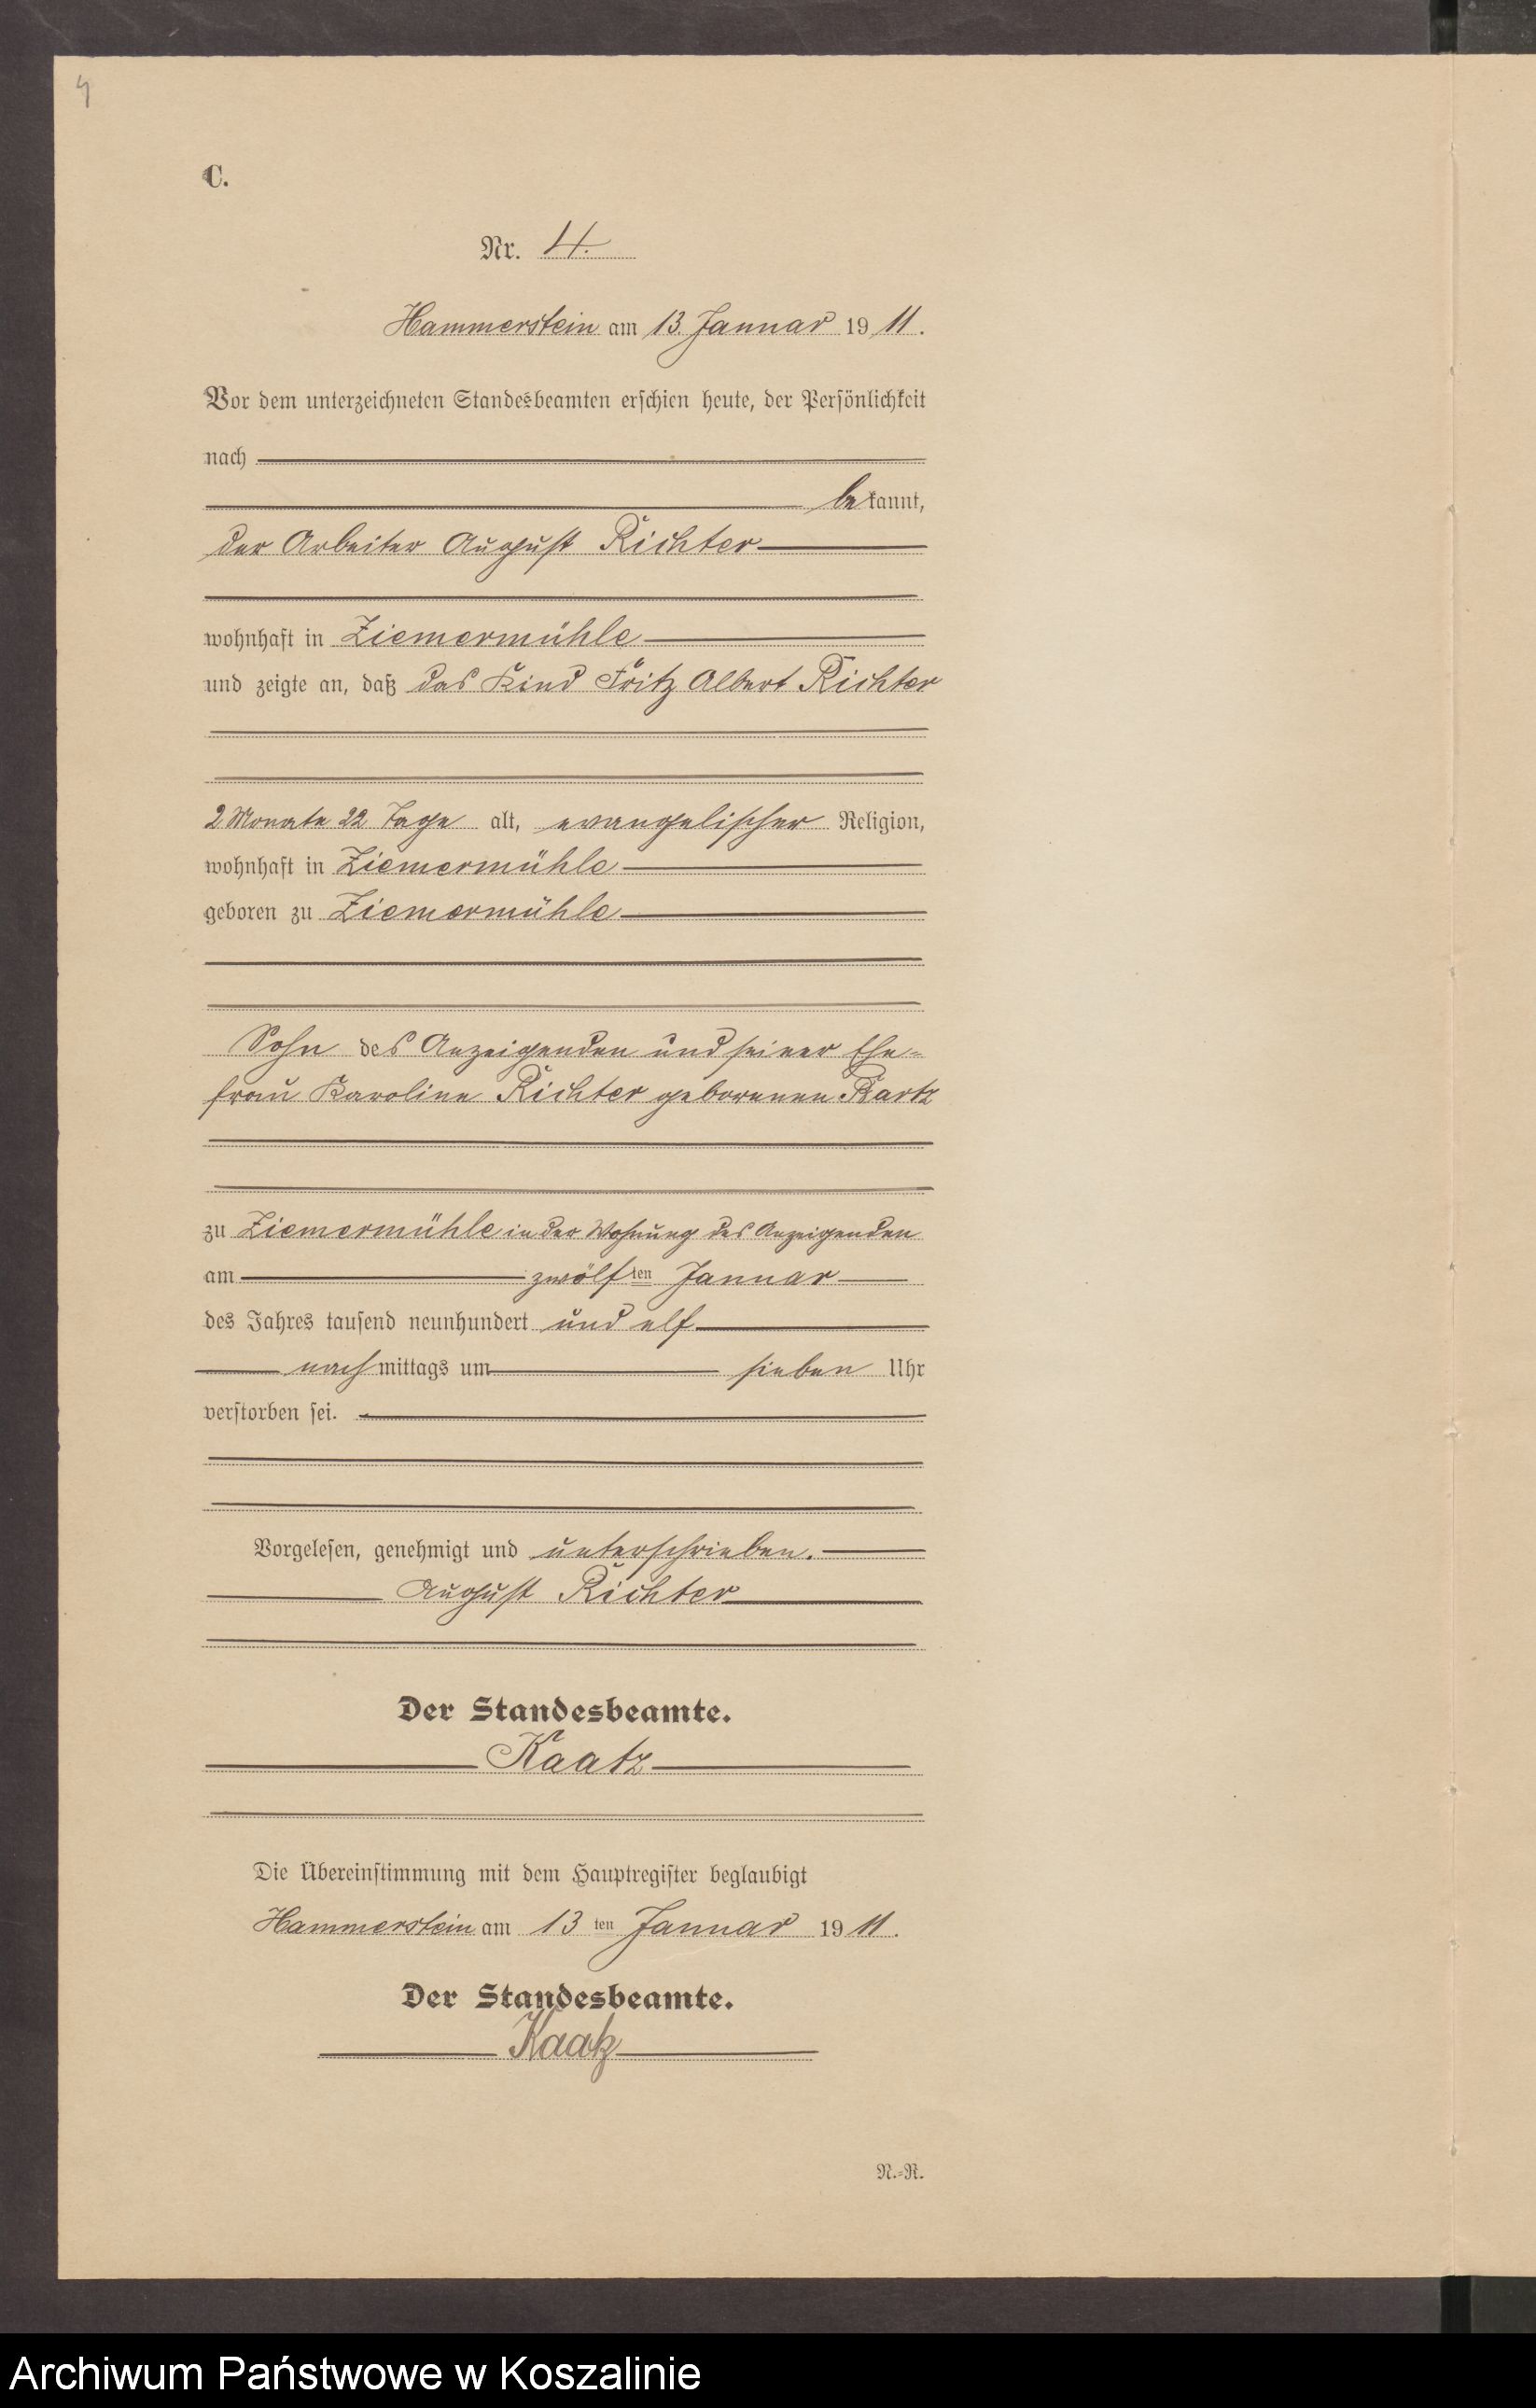 4
C.
Nr. 4.
Hammerstein am 13. Januar 19 11.
Vor dem unterzeichneten Standesbeamten erschien heute, der Persönlichkeit
nach
bekannt,
der Arbeiter August Richter
wohnhaft in Ziemermühle
und zeigte an, daß das Kind Fritz Albert Richter
2 Monate 22 Tage alt, evangelischer Religion,
wohnhaft in Ziemermühle
geboren zu Ziemermühle
Sohn des Anzeigenden und seiner Ehe-
frau Karoline Richter geborenen
zu Ziemermühle in der Wohnung des Anzeigenden
am zwölften Januar
des Jahres tausend neunhundert und elf
nachmittags um sieben Uhr
verstorben sei.
Vorgelesen, genehmigt und unterschrieben.
August Richter
Der Standesbeamte.
Kaatz
Die Übereinstimmung mit dem Hauptregister beglaubigt
Hammerstein am 13 ten Januar 19 11.
Der Standesbeamte.
Kaatz
N.-R.
Archiwum Państwowe w Koszalinie